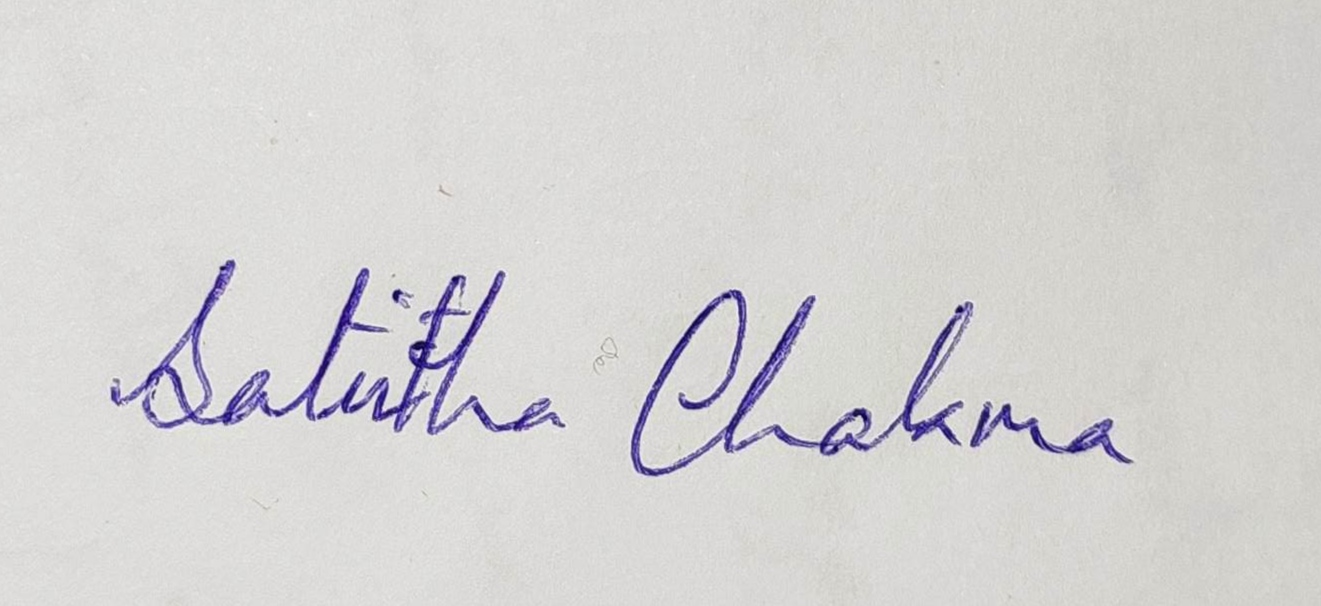 Satirtha Chakma